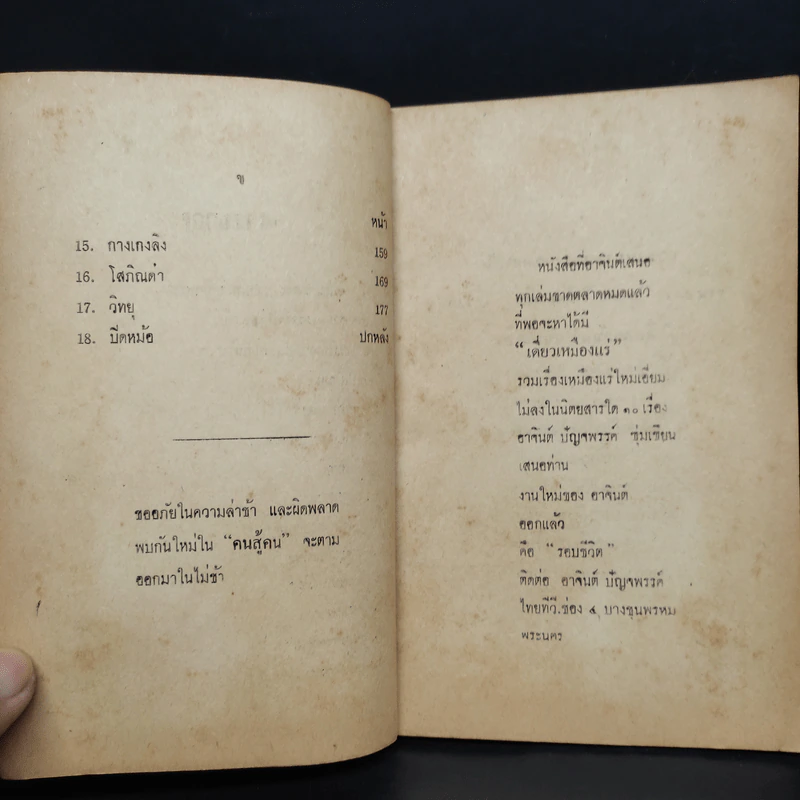 ข
หน้า
15. กางเกงลิง 159
16. โสภิณด๋า 169
17. วิทยุ 177
18. บี๊ดหม้อ ปกหลัง
ขออภัยในความล่าช้า และผิดพลาด
พบกันใหม่ใน “คนสู้คน” จะตาม
ออกมาในไม่ช้า
หนังสือที่อาจินต์เสนอ
ทุกเล่มขาดตลาดหมดแล้ว
ที่พอจะหาได้มี
“เดี่ยวเหมืองแร่”
รวมเรื่องเหมืองแร่ใหม่เอี่ยม
ไม่ลงในนิตยสารใด ๑๐ เรื่อง
อาจินต์ ปัญจพรรค์ ซุ่มเขียน
เสนอท่าน
งานใหม่ของ อาจินต์
ออกแล้ว
คือ “รอบชีวิต”
ติดต่อ อาจินต์ ปัญจพรรค์
ไทยทีวี.ช่อง ๔ บางขุนพรหม
พระนคร